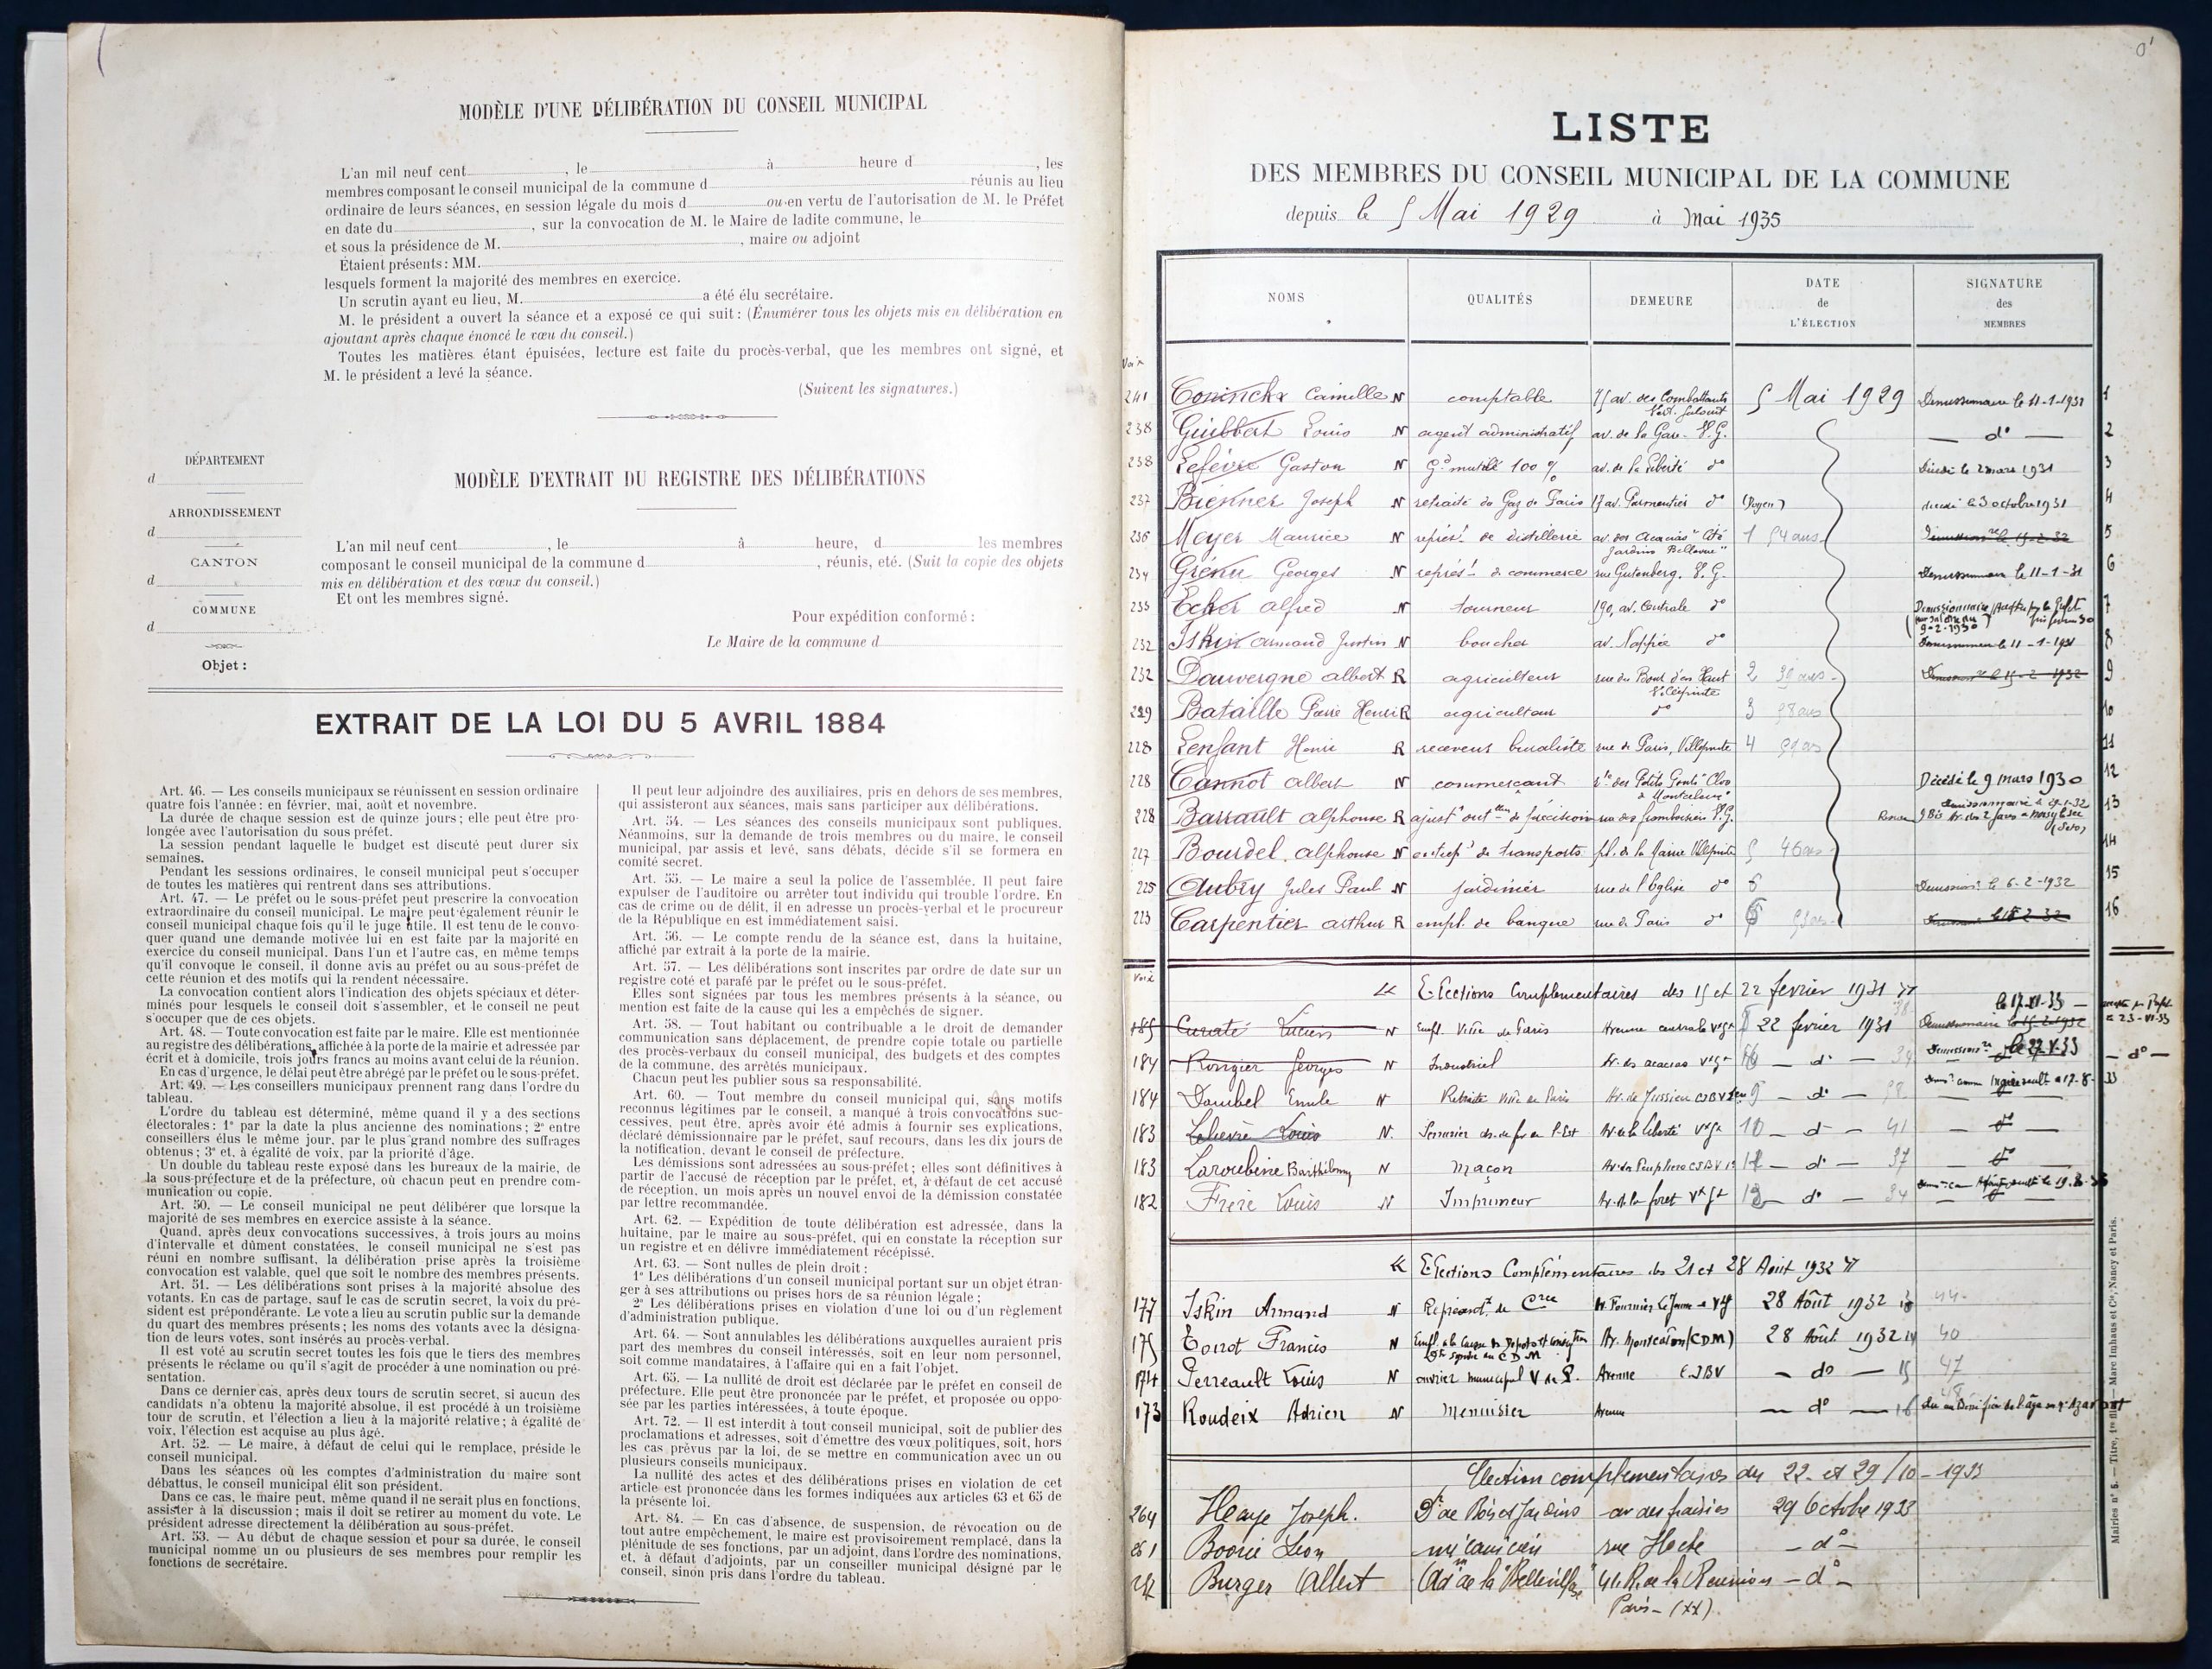 MODÈLE D'UNE DÉLIBÉRATION DU CONSEIL MUNICIPAL
L'an mil neuf cent , le à heure d , les
membres composant le conseil municipal de la commune d réunis au lieu
ordinaire de leurs séances, en session légale du mois d ou en vertu de l'autorisation de M. le Préfet
en date du , sur la convocation de M. le Maire de ladite commune, le
et sous la présidence de M. , maire ou adjoint
Étaient présents : MM.
lesquels forment la majorité des membres en exercice.
Un scrutin ayant eu lieu, M. a été élu secrétaire.
M. le président a ouvert la séance et a exposé ce qui suit : (Énumérer tous les objets mis en délibération en
ajoutant après chaque énoncé le vœu du conseil.)
Toutes les matières étant épuisées, lecture est faite du procès-verbal, que les membres ont signé, et
M. le président a levé la séance.
(Suivent les signatures.)
DÉPARTEMENT
d
ARRONDISSEMENT
d
CANTON
d
COMMUNE
d
Objet :
MODÈLE D'EXTRAIT DU REGISTRE DES DÉLIBÉRATIONS
L'an mil neuf cent , le à heure, d les membres
composant le conseil municipal de la commune d , réunis, eté. (Suit la copie des objets
mis en délibération et des vœux du conseil.)
Et ont les membres signé.
Pour expédition conforme :
Le Maire de la commune d
EXTRAIT DE LA LOI DU 5 AVRIL 1884
Art. 46. — Les conseils municipaux se réunissent en session ordinaire
quatre fois l'année : en février, mai, août et novembre.
La durée de chaque session est de quinze jours ; elle peut être pro-
longée avec l'autorisation du sous préfet.
La session pendant laquelle le budget est discuté peut durer six
semaines.
Pendant les sessions ordinaires, le conseil municipal peut s'occuper
de toutes les matières qui rentrent dans ses attributions.
Art. 47. — Le préfet ou le sous-préfet peut prescrire la convocation
extraordinaire du conseil municipal. Le maire peut également réunir le
conseil municipal chaque fois qu'il le juge utile. Il est tenu de le convo-
quer quand une demande motivée lui en est faite par la majorité en
exercice du conseil municipal. Dans l'un et l'autre cas, en même temps
qu'il convoque le conseil, il donne avis au préfet ou au sous-préfet de
cette réunion et des motifs qui la rendent nécessaire.
La convocation contient alors l'indication des objets spéciaux et déter-
minés pour lesquels le conseil doit s'assembler, et le conseil ne peut
s'occuper que de ces objets.
Art. 48. — Toute convocation est faite par le maire. Elle est mentionnée
au registre des délibérations, affichée à la porte de la mairie et adressée par
écrit et à domicile, trois jours francs au moins avant celui de la réunion.
En cas d'urgence, le délai peut être abrégé par le préfet ou le sous-préfet.
Art. 49. — Les conseillers municipaux prennent rang dans l'ordre du
tableau.
L'ordre du tableau est déterminé, même quand il y a des sections
électorales : 1° par la date la plus ancienne des nominations ; 2° entre
conseillers élus le même jour, par le plus grand nombre des suffrages
obtenus ; 3° et, à égalité de voix, par la priorité d'âge.
Un double du tableau reste exposé dans les bureaux de la mairie, de
la sous-préfecture et de la préfecture, où chacun peut en prendre com-
munication ou copie.
Art. 50. — Le conseil municipal ne peut délibérer que lorsque la
majorité de ses membres en exercice assiste à la séance.
Quand, après deux convocations successives, à trois jours au moins
d'intervalle et dûment constatées, le conseil municipal ne s'est pas
réuni en nombre suffisant, la délibération prise après la troisième
convocation est valable, quel que soit le nombre des membres présents.
Art. 51. — Les délibérations sont prises à la majorité absolue des
votants. En cas de partage, sauf le cas de scrutin secret, la voix du pré-
sident est prépondérante. Le vote a lieu au scrutin public sur la demande
du quart des membres présents ; les noms des votants avec la désigna-
tion de leurs votes, sont insérés au procès-verbal.
Il est voté au scrutin secret toutes les fois que le tiers des membres
présents le réclame ou qu'il s'agit de procéder à une nomination ou pré-
sentation.
Dans ce dernier cas, après deux tours de scrutin secret, si aucun des
candidats n'a obtenu la majorité absolue, il est procédé à un troisième
tour de scrutin, et l'élection a lieu à la majorité relative ; à égalité de
voix, l'élection est acquise au plus âgé.
Art. 52. — Le maire, à défaut de celui qui le remplace, préside le
conseil municipal.
Dans les séances où les comptes d'administration du maire sont
débattus, le conseil municipal élit son président.
Dans ce cas, le maire peut, même quand il ne serait plus en fonctions,
assister à la discussion ; mais il doit se retirer au moment du vote. Le
président adresse directement la délibération au sous-préfet.
Art. 53. — Au début de chaque session et pour sa durée, le conseil
municipal nomme un ou plusieurs de ses membres pour remplir les
fonctions de secrétaire.
Il peut leur adjoindre des auxiliaires, pris en dehors de ses membres,
qui assisteront aux séances, mais sans participer aux délibérations.
Art. 54. — Les séances des conseils municipaux sont publiques.
Néanmoins, sur la demande de trois membres ou du maire, le conseil
municipal, par assis et levé, sans débats, décide s'il se formera en
comité secret.
Art. 55. — Le maire a seul la police de l'assemblée. Il peut faire
expulser de l'auditoire ou arrêter tout individu qui trouble l'ordre. En
cas de crime ou de délit, il en adresse un procès-verbal et le procureur
de la République en est immédiatement saisi.
Art. 56. — Le compte rendu de la séance est, dans la huitaine,
affiché par extrait à la porte de la mairie.
Art. 57. — Les délibérations sont inscrites par ordre de date sur un
registre coté et parafé par le préfet ou le sous-préfet.
Elles sont signées par tous les membres présents à la séance, ou
mention est faite de la cause qui les a empêchés de signer.
Art. 58. — Tout habitant ou contribuable a le droit de demander
communication sans déplacement, de prendre copie totale ou partielle
des procès-verbaux du conseil municipal, des budgets et des comptes
de la commune, des arrêtés municipaux.
Chacun peut les publier sous sa responsabilité.
Art. 60. — Tout membre du conseil municipal qui, sans motifs
reconnus légitimes par le conseil, a manqué à trois convocations suc-
cessives, peut être, après avoir été admis à fournir ses explications,
déclaré démissionnaire par le préfet, sauf recours, dans les dix jours de
la notification, devant le conseil de préfecture.
Les démissions sont adressées au sous-préfet ; elles sont définitives à
partir de l'accusé de réception par le préfet, et, à défaut de cet accusé
de réception, un mois après un nouvel envoi de la démission constatée
par lettre recommandée.
Art. 62. — Expédition de toute délibération est adressée, dans la
huitaine, par le maire au sous-préfet, qui en constate la réception sur
un registre et en délivre immédiatement récépissé.
Art. 63. — Sont nulles de plein droit :
1° Les délibérations d'un conseil municipal portant sur un objet étran-
ger à ses attributions ou prises hors de sa réunion légale ;
2° Les délibérations prises en violation d'une loi ou d'un règlement
d'administration publique.
Art. 64. — Sont annulables les délibérations auxquelles auraient pris
part des membres du conseil intéressés, soit en leur nom personnel,
soit comme mandataires, à l'affaire qui en a fait l'objet.
Art. 65. — La nullité de droit est déclarée par le préfet en conseil de
préfecture. Elle peut être prononcée par le préfet, et proposée ou oppo-
sée par les parties intéressées, à toute époque.
Art. 72. — Il est interdit à tout conseil municipal, soit de publier des
proclamations et adresses, soit d'émettre des vœux politiques, soit, hors
les cas prévus par la loi, de se mettre en communication avec un ou
plusieurs conseils municipaux.
La nullité des actes et des délibérations prises en violation de cet
article est prononcée dans les formes indiquées aux articles 63 et 65 de
la présente loi.
Art. 84. — En cas d'absence, de suspension, de révocation ou de
tout autre empêchement, le maire est provisoirement remplacé, dans la
plénitude de ses fonctions, par un adjoint, dans l'ordre des nominations,
et, à défaut d'adjoints, par un conseiller municipal désigné par le
conseil, sinon pris dans l'ordre du tableau.
LISTE
DES MEMBRES DU CONSEIL MUNICIPAL DE LA COMMUNE
depuis le 5 Mai 1929 à Mai 1935
NOMS QUALITÉS DEMEURE DATE de L'ÉLECTION SIGNATURE des MEMBRES
Voix
241 Coninckx Camille N comptable 75 av. des Combattants 5 Mai 1929 Démissionnaire le 11-1-1931 1
238 Guilbert Louis N agent administratif av. de la Gare. V.G. — d° — 2
238 Lefèvre Gaston N Gd mutilé 100 % av. de la Liberté d° Décédé le 2 mars 1931 3
237 Biénner Joseph N retraité du Gaz de Paris 17 av. Parmentier d° (Doyen) décédé le 3 octobre 1931 4
236 Meyer Maurice N représt de distillerie av. des Acacias "Cité 1 54 ans 5
Jardins Bellevue"
234 Grenu Georges N représt de commerce rue Gutenberg. V.G. Démissionnaire le 11-1-31 6
233 Ecker Alfred N tourneur 190, av. Centrale d° Démissionnaire 7
9-2-1930
232 Iskin Armand Justin N boucher av. d° Démissionnaire le 11-1-1931 8
232 Dauvergne Albert R agriculteur rue du Bout d'en Haut 2 39 ans 9
229 Bataille Pierre Henri R agriculteur d° 3 58 ans 10
228 Lenfant Henri R receveur buraliste rue de Paris, Villepinte 4 11
228 Cannot Albert N commerçant des Petits Ponts "Clos Décédé le 9 mars 1930 12
de Montceleux"
228 Barrault Alphonse R ajustr de précision V.G. 13
227 Bourdel Alphonse N entrepr de transports pl. de la Mairie Villepinte 5 46 ans 14
225 Aubry Jules Paul N jardinier rue de l'Eglise d° 6 le 6-2-1932 15
223 Carpentier Arthur R empl. de banque rue de Paris d° 16
Voix
" Elections Complémentaires des 15 et 22 fevrier 1931 "
185 Curaté Lucien N Empl. Ville de Paris Avenue centrale 22 fevrier 1931 38 le 17-VI-33
184 Rongier Georges N Industriel Av. des acacias — d° — 34 — d° —
184 Dambel Emile N Retraité Ville de Paris Av. de Jussieu 9 — d° — 58
183 Lelievre Louis N. ch. de fer de l'Est Av. de la Liberté 10 — d° — 41
183 Laroubine Barthélemy N Maçon — d° — 37
182 Frère Louis N Imprimeur Av. de la foret — d° — 34
" Elections Complémentaires des 21 et 28 Août 1932 "
177 Iskin Armand N Représentt de Cce 28 Août 1932 44
175 Torrot Francis N Av. Montcalm (CDM) 28 Août 1932 14 40
174 Perreault Louis N ouvrier municipal V de P. Avenue C.JBV — d° — 15 47
173 Roudeix Adrien N Menuisier Avenue — d° — 16 48
Election complementaires des 22 et 29/10-1933
264 Heaye Joseph. av des prairies 29 Octobre 1933
261 Boorié Léon mécanicien rue Hoche — d° —
Burger Albert de la "Bellevilloise" 41. R. de la Réunion — d° —
Paris - (XX)
Mairies n° 5. — Titre, 1re flle — Marc Imhaus et Cie, Nancy et Paris.